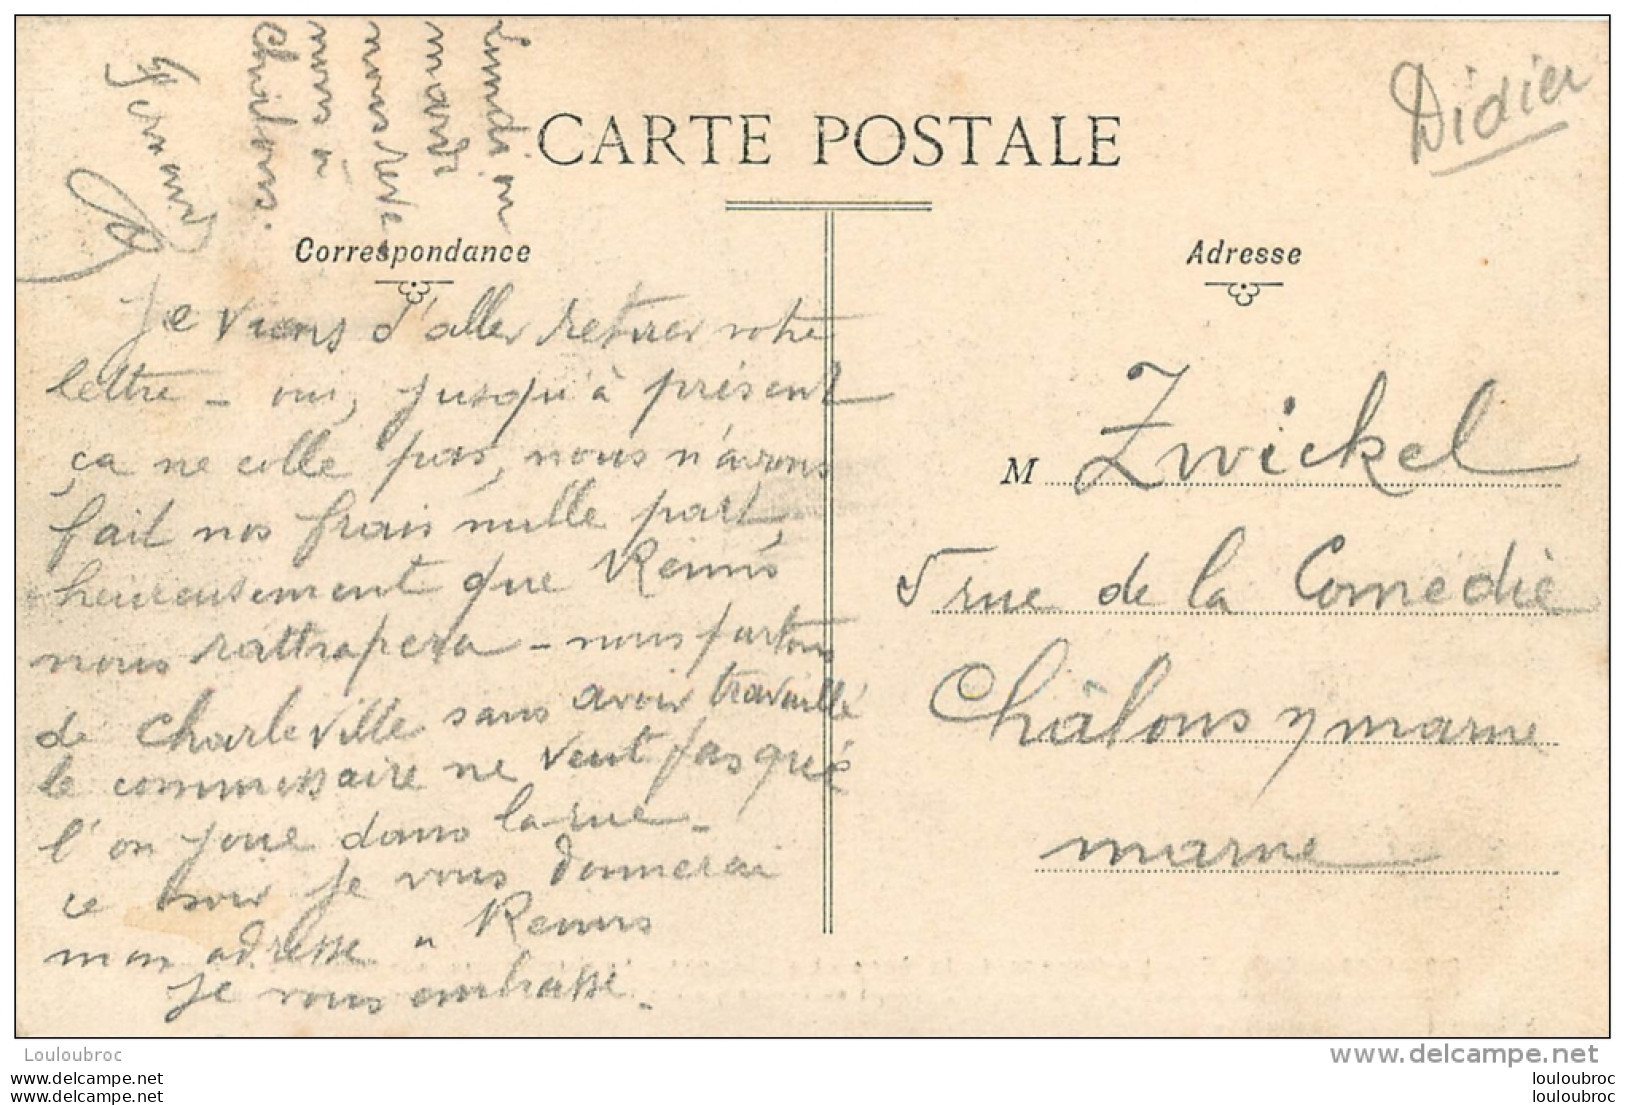 CARTE POSTALE
Didier
Correspondance
Adresse
Je viens d'aller retirer votre
lettre - oui, jusqu'à présent
ça ne colle pas, nous n'avons
fait nos frais nulle part,
heureusement que Reims
nous rattrapera - nous partons
de Charleville sans avoir travaillé
le commissaire ne veut pas que
l'on joue dans la rue -
ce soir je vous donnerai
mon adresse à Reims
je vous embrasse -
lundi ou
mardi
nous
nous à
Châlons.
Fernand
M Zwickel
5 rue de la Comedie
Châlons s/ marne
marne
Louloubroc
www.delcampe.net
louloubroc
louloubroc
www.delcampe.net
www.delcampe.net